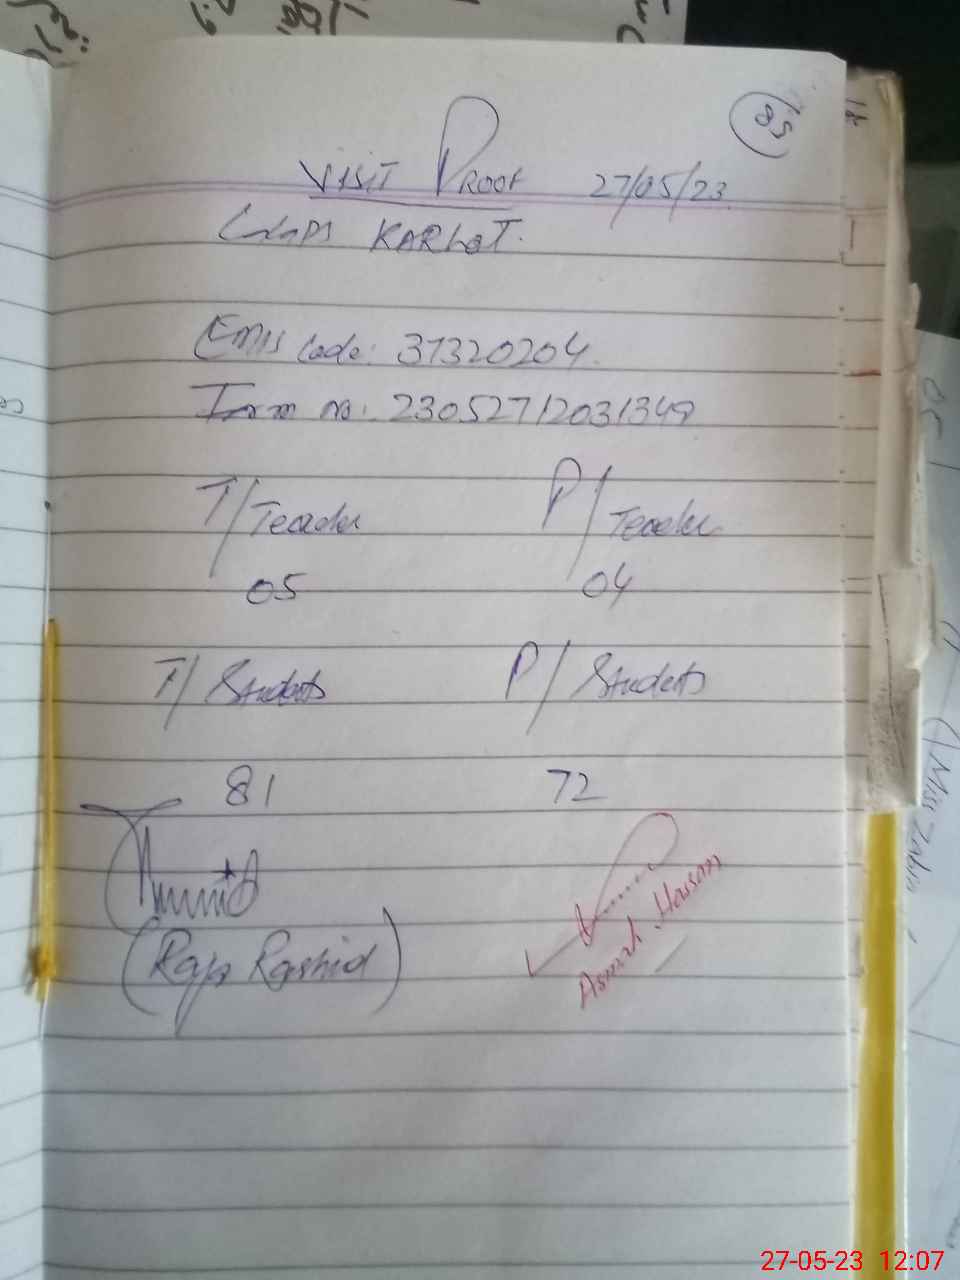 85
VISIT PROOF 27/05/23
GGPS KARLOT.
EMIS Code: 37320204.
Form no: 23052712031349
T/Teacher P/Teacher
05 04
T/Students P/Students
81 72
(Raja Rashid)
Asmah Hassan
Miss
27-05-23 12:07